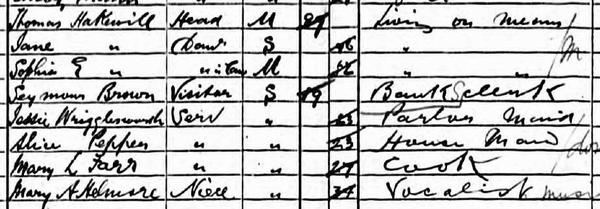 Thomas Hakewill Head M 89 Living on means
Jane " Daur S 46 "
Sophia E " " in law M 56 " "
Seymour Brown Visitor S 19 Bank Clerk
Jessie Wrigglesworth Serv " 23 Parlor Maid
Alice Pepper " " 23 House Maid
Mary L Farr " " 27 Cook
Mary A Helmore Niece " 34 Vocalist